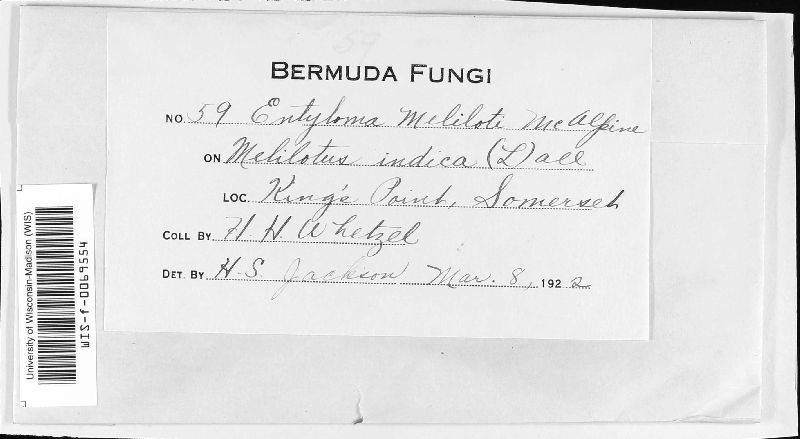 59
BERMUDA FUNGI
NO. 59 Entyloma Meliloti McAlpine
ON Melilotus indica (L) all
LOC. King's Point, Somerset
COLL BY H. H. Whetzel
DET. BY H. S. Jackson Mar. 8, 1922
University of Wisconsin-Madison (WIS)
WIS-f-0069554